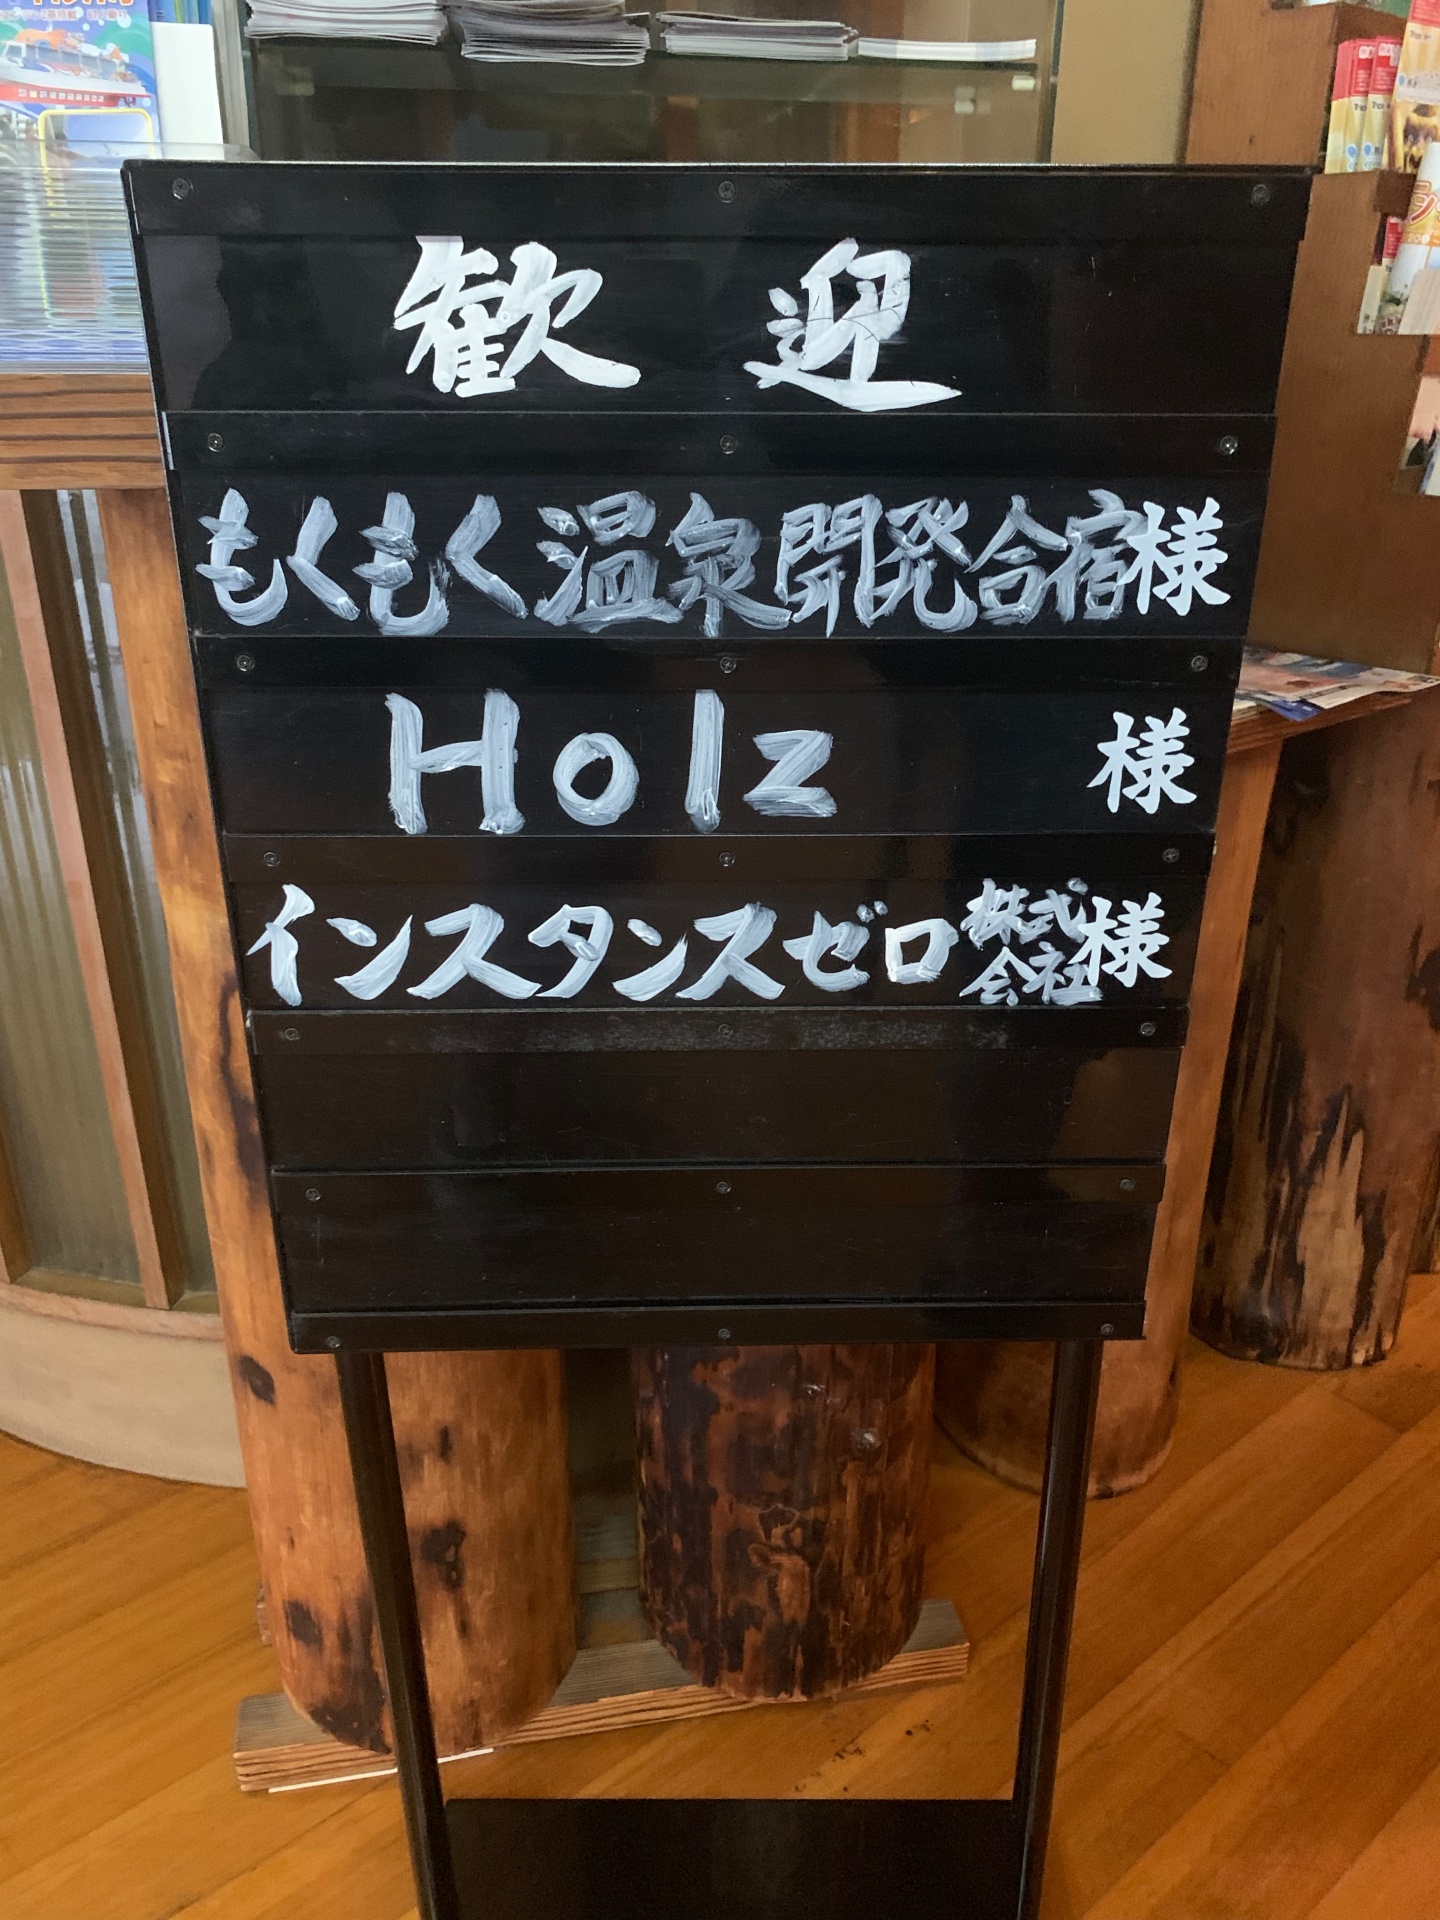 歓迎
もくもく温泉開発合宿様
Holz 様
インスタンスゼロ株式会社様